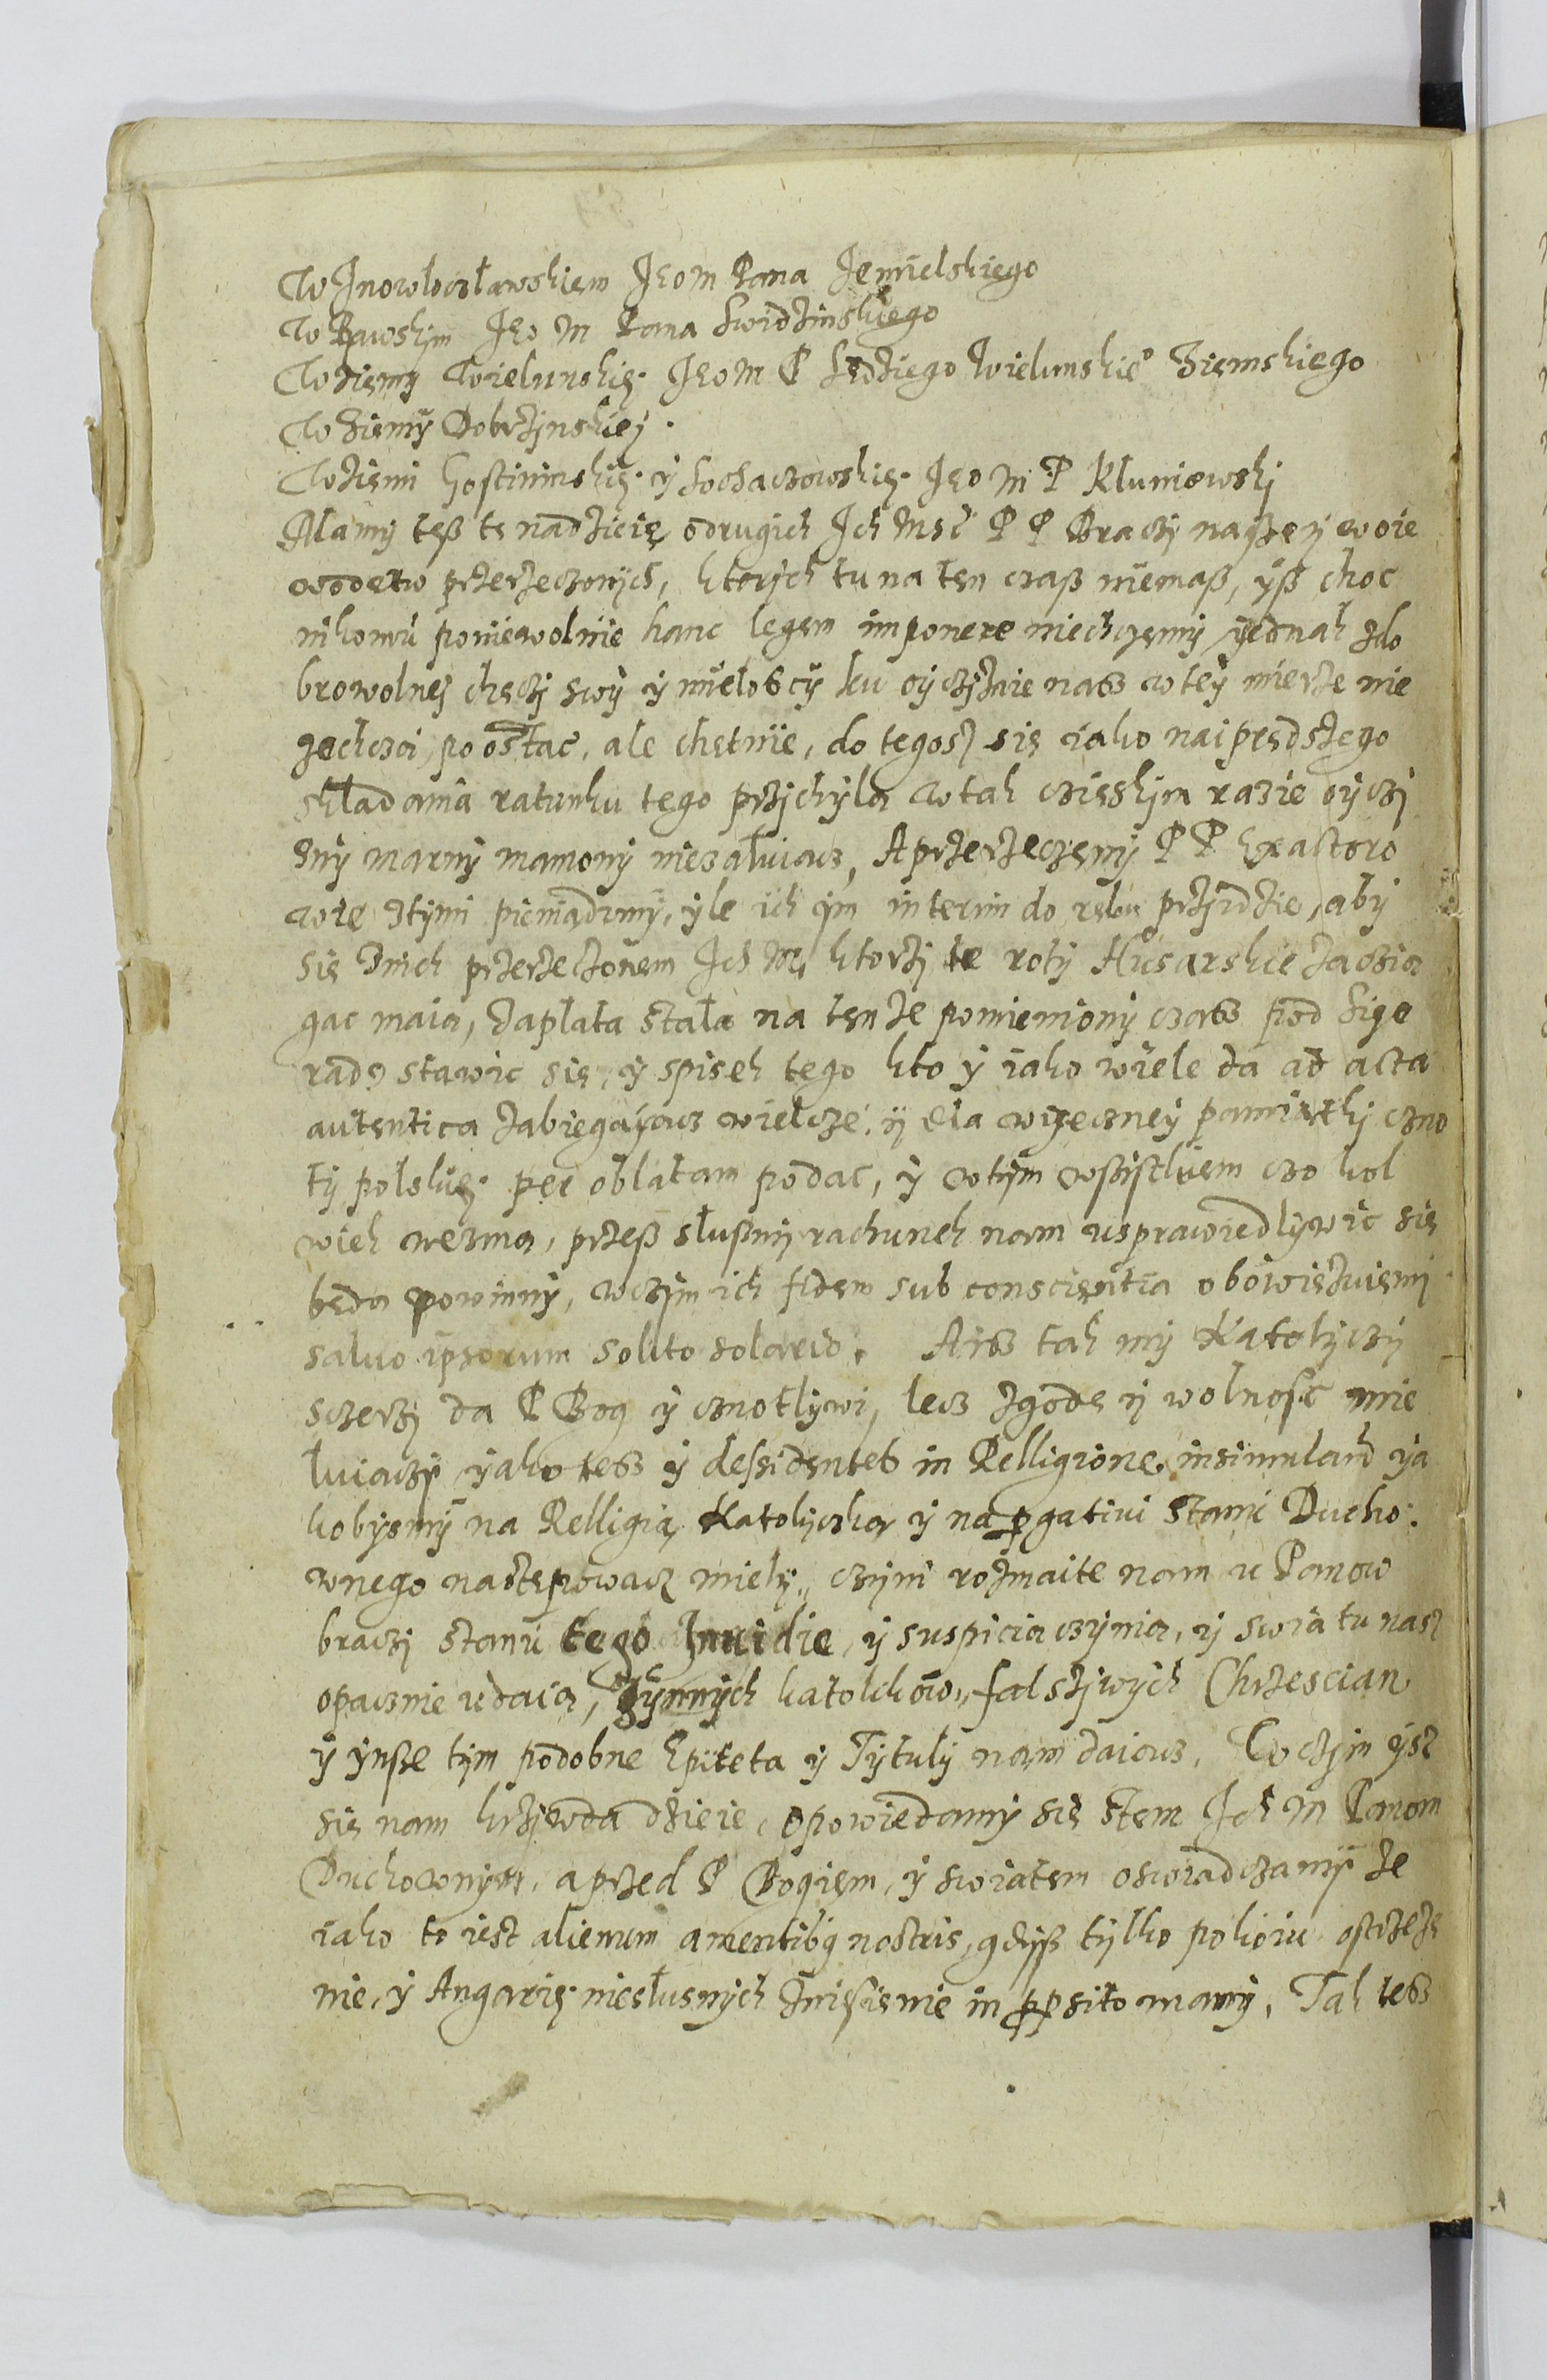 W Inowloczlawskiem Jeo M Pana Jemielskiego
W Rawskym Jeo M Pana Swidzinskiego
W Ziemy Wielunskiey Jeo M P Sędziego Wielunskie° Ziemskiego
W Ziemÿ Dobrzynskiey.
W Ziemi Gostininskiey ÿ Sochaczowskiey Jeo M P Kluniewskj
Mamÿ teß te nadzieię o drugich Ich Msc P P Braczy nayzey woie
wodztw przerzeczonÿch, ktorÿch tu na ten czaß niemaß, ÿß choc
nikomu poniewolnie hanc legem imponere niechczemÿ ÿednak z do
browolney chęczj swÿ ÿ miełosczÿ ku oÿczÿznie nasz w teÿ mierze nie
zechcza poostac, ale chętnie, do tegosz się iako naiprędszego
składania ratunku tego przÿchÿla w tak cziesskjm razie oÿczj
znÿ marnÿ mamonÿ niezałuiacz, A przerzeczeny P P Exactoro
wie ztÿmi pieniądzmÿ, ÿle ich ÿm interim do ręku przÿdzie, abÿ
się Znich przerzeczonem Ich M ktorzj te rotÿ Husarskie zaczia
gac maia, zapłata stała na tenze pomienionÿ czasz pod Sige
radz stawic się, ÿ spisek tego kto ÿ iako wiele da ad acta
autentica zabiegaÿacz wielcze, ÿ dla wieczneÿ pamiątkj czno
tÿ polskieÿ per oblatam podac, ÿ w tÿm wsßistkiem czo kol
wiek wezma, przeß słußnÿ rachunek nam usprawiedlÿwic się
będa powinnÿ, w czÿm ich fidem sub conscientia obowiezuiemÿ
saluo ipsorum solito solario. A isz tak mÿ Katolÿczÿ
sczerzj da P Bog ÿ cznotlÿwi, lecz zgodę ÿ wolnosc mie
luiaczÿ ÿako tesz ÿ dessidentes in Relligione, insimuland ÿa
kobÿsmÿ na Relligią Katolÿczka ÿ na pgatiui stanu Ducho.
wnego nastepowacz mielÿ, czÿm rozmaite nam u Panow
braczj stanu tego Inuidie, ÿ suspicia czÿnia, ÿ swiatu nasz
opacznie udaia, zÿnnÿch katolikow, falszÿwÿch Chrzescian
ÿ ÿnße tÿm podobne Epiteta ÿ Tÿtulÿ nam daiacz. W czÿm ÿsz
się nam krzÿwda dzieie, opowiedamÿ się stem Ich M Panom
Duchownÿm, a przed P Bogiem, ÿ swiatem oswiadczamÿ ze
iako to iest alienum a mentibq nostris, gdÿß tÿlko pokoiu ostrzeze
nie, ÿ Angarię niesłusnÿch Zniesienie in ppsito mamÿ. Tak tesz